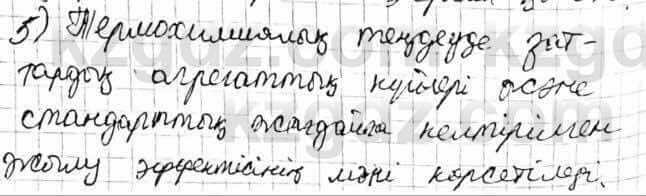 5) Термохимиялық теңдеуде зат-
тардың агрегаттық күйлері және
стандарттық жағдайға келтірілген
жылу эффектісінің мәні көрсетіледі.